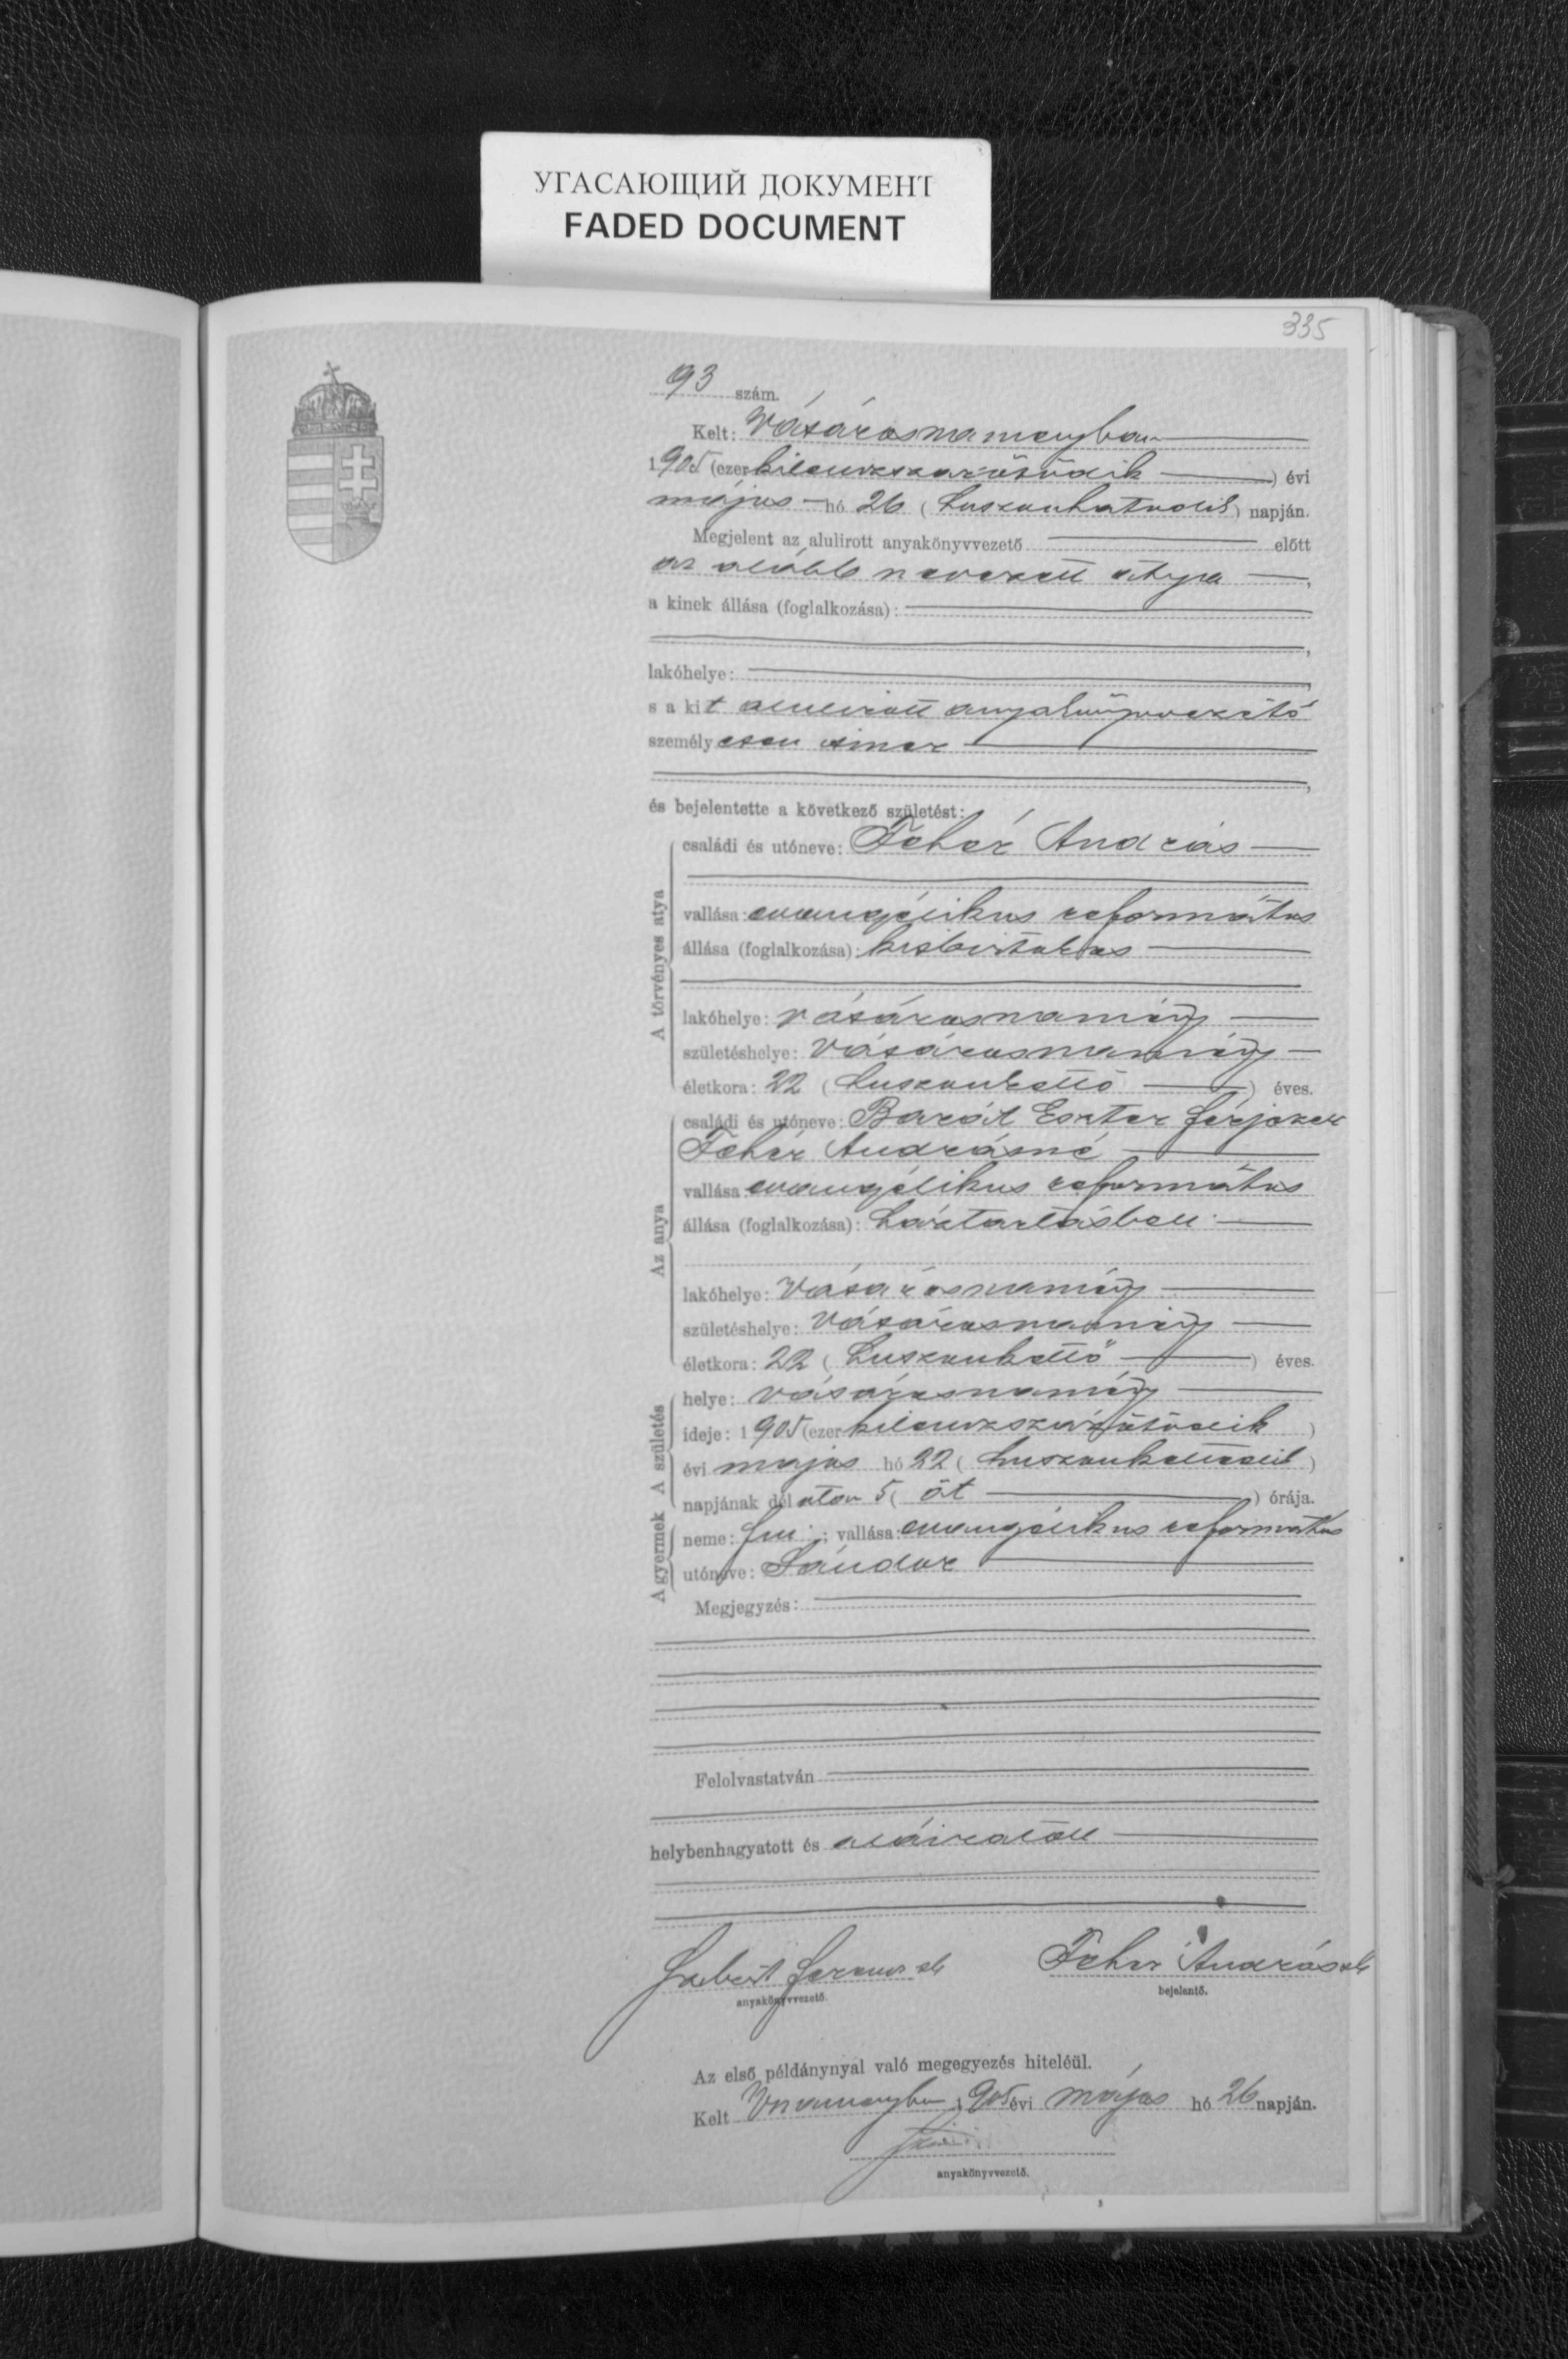 УГАСАЮЩИЙ ДОКУМЕНТ
FADED DOCUMENT
335
93 szám.
Kelt: Vásárosnaményban
1905 (ezerkilenczszázötödik) évi
május hó 26 (huszonhatodik) napján.
Megjelent az alulirott anyakönyvvezető előtt
az alább nevezett atya,
a kinek állása (foglalkozása):
lakóhelye:
s a kit alulirott anyakönyvvezető
személyesen ismer
és bejelentette a következő születést:
A törvényes atya
családi és utóneve: Fehér András
vallása: evangélikus református
állása (foglalkozása): kisbirtokos
lakóhelye: Vásárosnamény
születéshelye: Vásárosnamény
életkora: 22 (huszonkettő) éves.
Az anya
családi és utóneve: Baráth Eszter férjezett
Fehér Andrásné
vallása: evangélikus református
állása (foglalkozása): háztartásbeli
lakóhelye: Vásárosnamény
születéshelye: Vásárosnamény
életkora: 22 (huszonkettő) éves.
A születés
helye: Vásárosnamény
ideje: 1905 (ezerkilenczszázötödik)
évi május hó 22 (huszonkettedik)
napjának délután 5 (öt) órája.
A gyermek
neme: fiu; vallása: evangélikus református
utóneve: Sándor
Megjegyzés:
Felolvastatván
helybenhagyatott és aláiratott
Ferencz sk Fehér András sk
anyakönyvvezető. bejelentő.
Az első példánynyal való megegyezés hiteléül.
Kelt Vnaményban 1905 évi május hó 26 napján.
anyakönyvvezető.